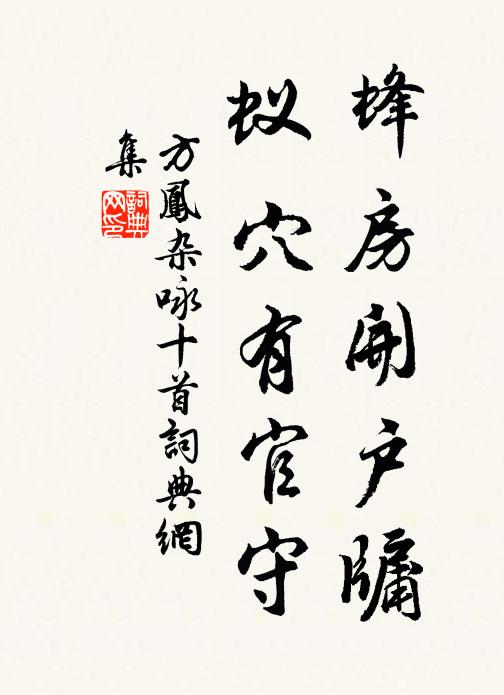 蜂房開户牖
蚁穴有官守
方鳳杂咏十首詞典網
集
詞典网印